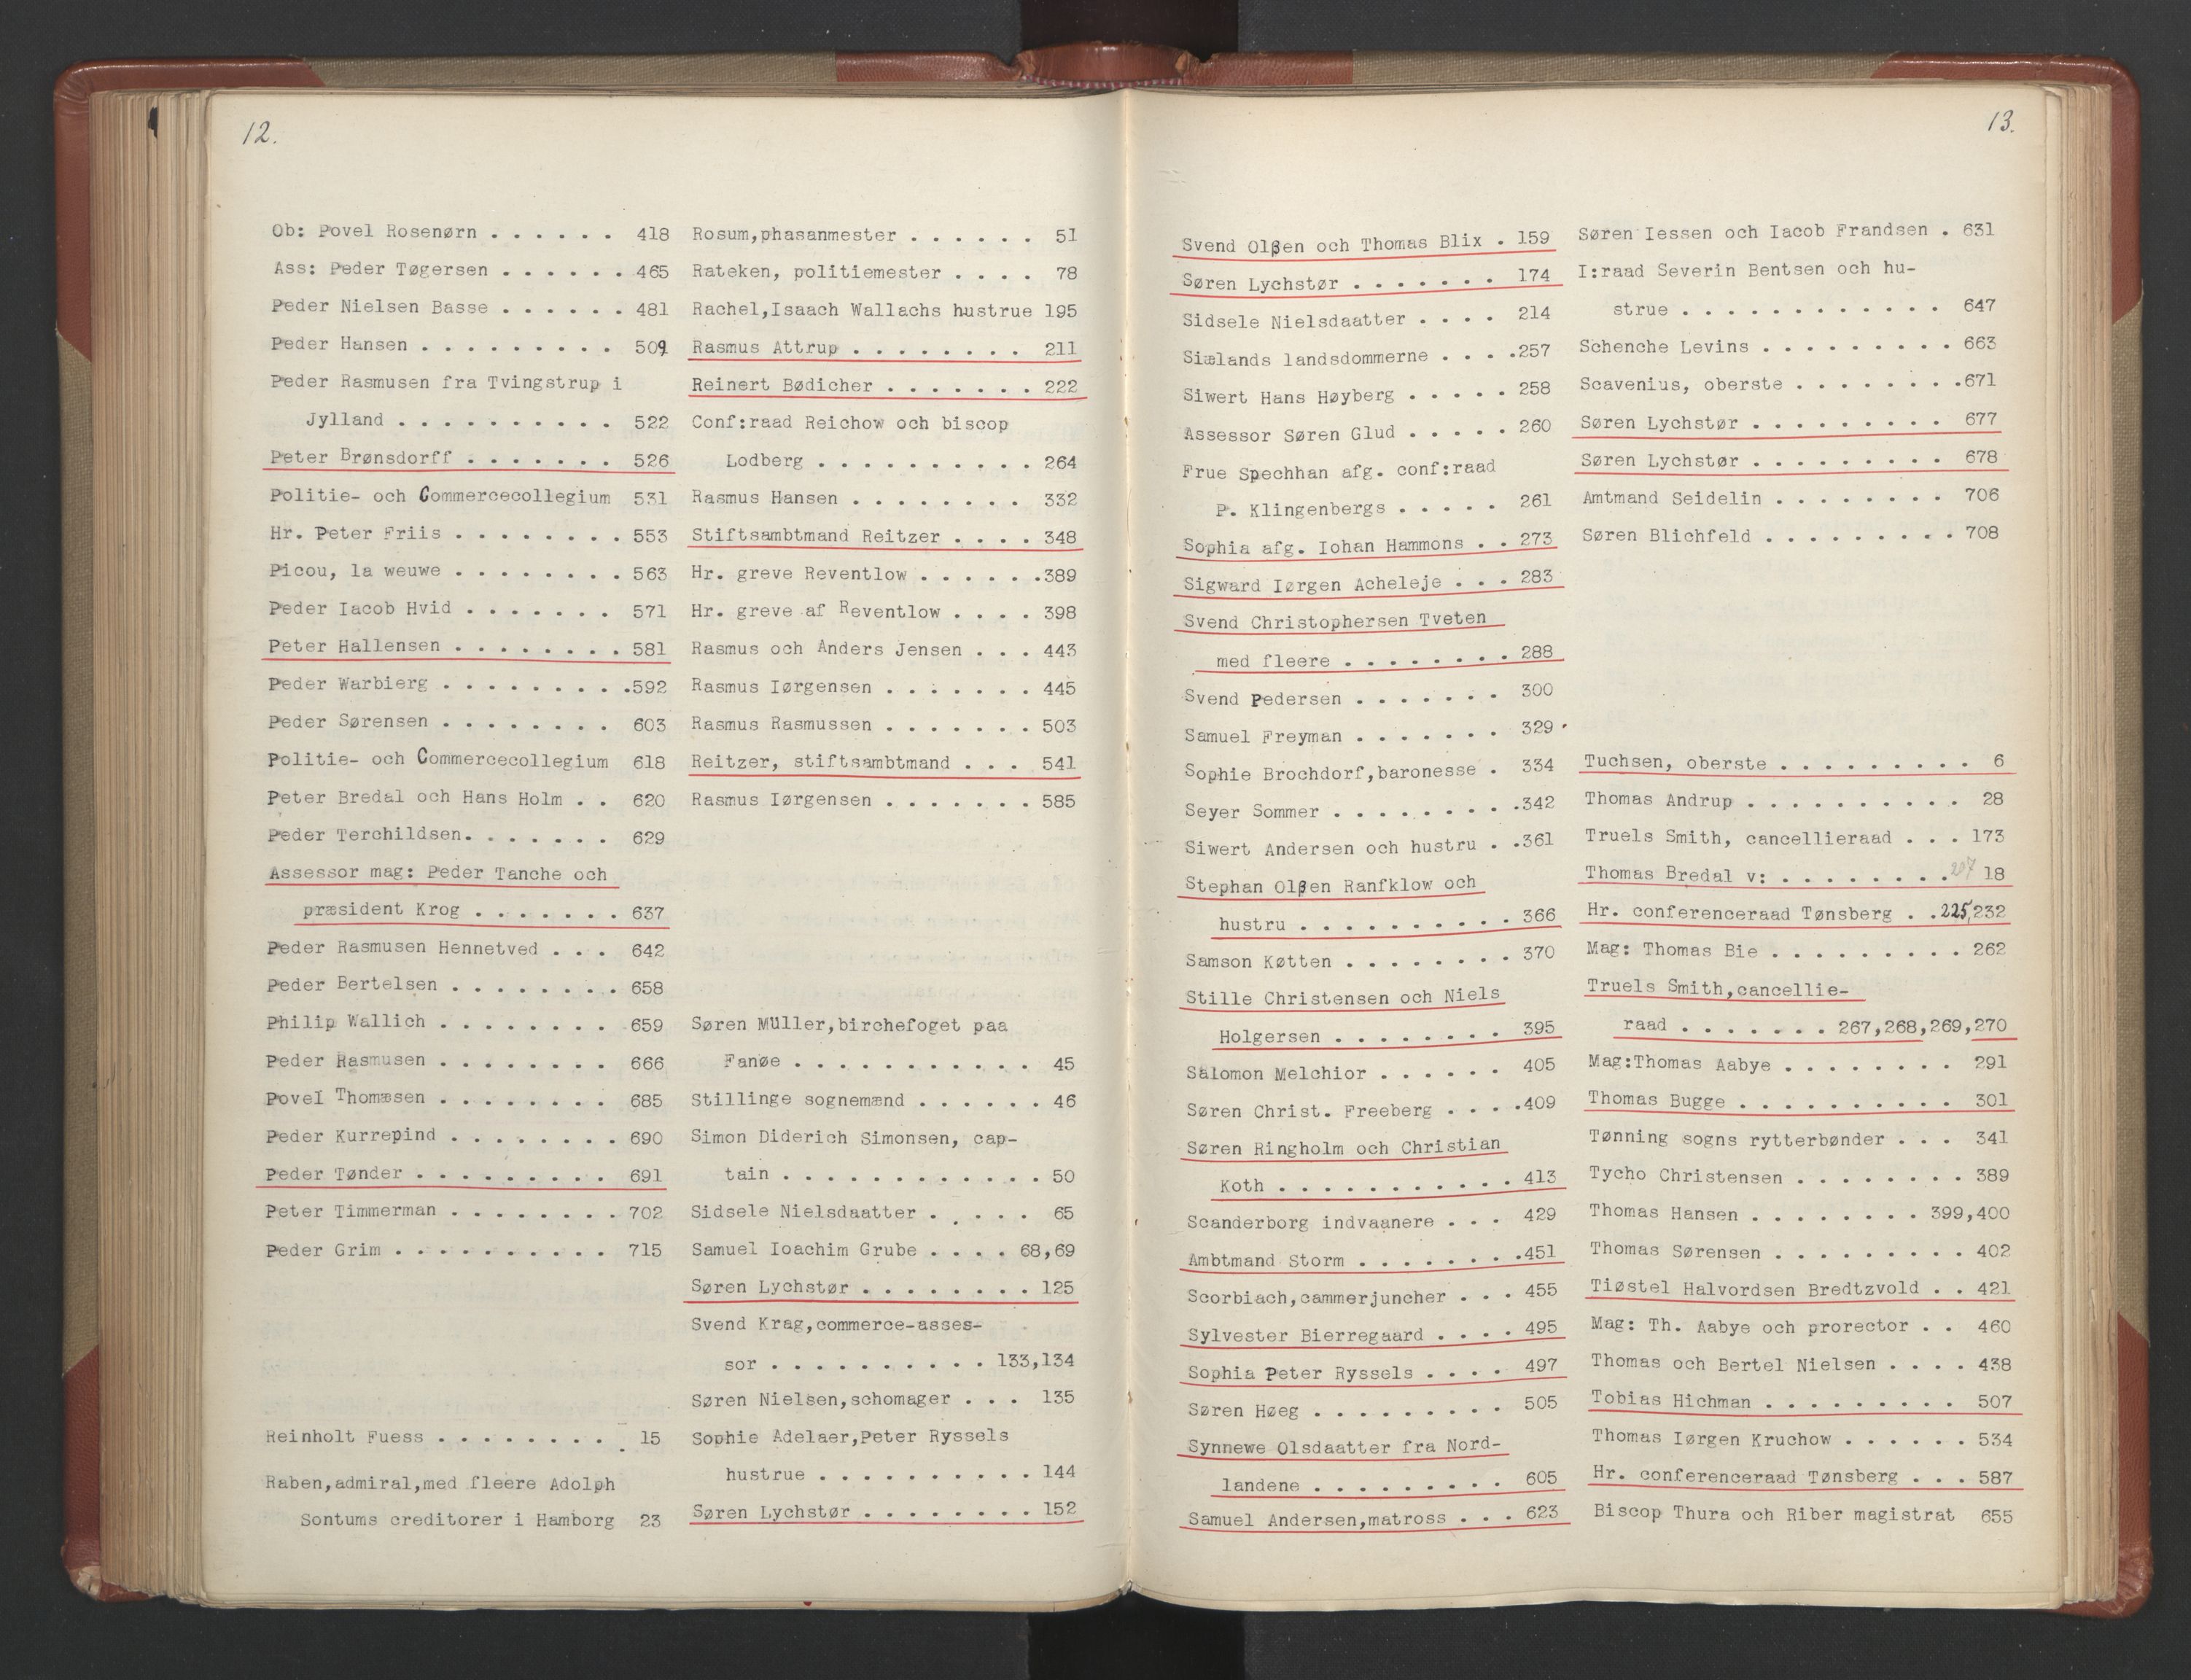 12.
Ob: Povel Rosenørn . . . . . . 418
Ass: Peder Tøgersen . . . . . . 465
Peder Nielsen Basse . . . . . . 481
Peder Hansen . . . . . . . . . 509
Peder Rasmusen fra Tvingstrup i
Jylland . . . . . . . . . . 522
Peter Brønsdorff . . . . . . . 526
Politie- och Commercecollegium 531
Hr. Peter Friis . . . . . . . . 553
Picou, la weuwe . . . . . . . . 563
Peder Iacob Hvid . . . . . . . 571
Peter Hallensen . . . . . . . . 581
Peder Warbierg . . . . . . . . .592
Peder Sørensen . . . . . . . . 603
Politie- och Commercecollegium 618
Peter Bredal och Hans Holm . . 620
Peder Terchildsen. . . . . . . 629
Assessor mag: Peder Tanche och
præsident Krog . . . . . . . 637
Peder Rasmusen Hennetved . . . 642
Peder Bertelsen . . . . . . . . 658
Philip Wallich . . . . . . . . 659
Peder Rasmusen . . . . . . . . 666
Povel Thomæsen . . . . . . . . 685
Peder Kurrepind . . . . . . . . 690
Peder Tønder . . . . . . . . . 691
Peter Timmerman . . . . . . . . 702
Peder Grim . . . . . . . . . . 715
Reinholt Fuess . . . . . . . . . 15
Raben,admiral,med fleere Adolph
Sontums creditorer i Hamborg 23
Rosum,phasanmester . . . . . . 51
Rateken, politiemester . . . . 78
Rachel,Isaach Wallachs hustrue 195
Rasmus Attrup . . . . . . . . 211
Reinert Bødicher . . . . . . . 222
Conf:raad Reichow och biscop
Lodberg . . . . . . . . . . 264
Rasmus Hansen . . . . . . . . 332
Stiftsambtmand Reitzer . . . . 348
Hr. greve Reventlow . . . . . .389
Hr. greve af Reventlow . . . . 398
Rasmus och Anders Jensen . . . 443
Rasmus Iørgensen . . . . . . . 445
Rasmus Rasmussen . . . . . . . 503
Reitzer, stiftsambtmand . . . 541
Rasmus Iørgensen . . . . . . . 585
Søren Müller,birchefoget paa
Fanøe . . . . . . . . . . . 45
Stillinge sognemænd . . . . . . 46
Simon Diderich Simonsen, cap-
tain . . . . . . . . . . . . 50
Sidsele Nielsdaatter . . . . . 65
Samuel Ioachim Grube . . . . 68,69
Søren Lychstør . . . . . . . . 125
Svend Krag,commerce-asses-
sor . . . . . . . . . . 133,134
Søren Nielsen,schomager . . . 135
Sophie Adelaer,Peter Ryssels
hustrue . . . . . . . . . . 144
Søren Lychstør . . . . . . . . 152
13.
Svend Olßen och Thomas Blix . 159
Søren Lychstør . . . . . . . 174
Sidsele Nielsdaatter . . . . 214
Siælands landsdommerne . . . .257
Siwert Hans Høyberg . . . . . 258
Assessor Søren Glud . . . . . 260
Frue Spechhan afg. conf:raad
P. Klingenbergs . . . . . 261
Sophia afg. Iohan Hammons . . 273
Sigward Iørgen Acheleje . . . 283
Svend Christophersen Tveten
med fleere . . . . . . . . 288
Svend Pedersen . . . . . . . 300
Samuel Freyman . . . . . . . 329
Sophie Brochdorf,baronesse . 334
Seyer Sommer . . . . . . . . .342
Siwert Andersen och hustru . .361
Stephan Olßen Ranfklow och
hustru . . . . . . . . . . 366
Samson Køtten . . . . . . . . 370
Stille Christensen och Niels
Holgersen . . . . . . . . 395
Salomon Melchior . . . . . . 405
Søren Christ. Freeberg . . . .409
Søren Ringholm och Christian
Koth . . . . . . . . . . . 413
Scanderborg indvaanere . . . 429
Ambtmand Storm . . . . . . . .451
Scorbiach,cammerjuncher . . . 455
Sylvester Bierregaard . . . . 495
Sophia Peter Ryssels . . . . 497
Søren Høeg . . . . . . . . . 505
Synnewe Olsdaatter fra Nord-
landene . . . . . . . . . 605
Samuel Andersen,matross . . . 623
Søren Iessen och Iacob Frandsen . 631
I:raad Severin Bentsen och hu-
strue . . . . . . . . . . . . 647
Schenche Levins . . . . . . . . . 663
Scavenius, oberste . . . . . . . .671
Søren Lychstør . . . . . . . . . 677
Søren Lychstør . . . . . . . . . 678
Amtmand Seidelin . . . . . . . . 706
Søren Blichfeld . . . . . . . . . 708
Tuchsen, oberste . . . . . . . . . 6
Thomas Andrup . . . . . . . . . . 28
Truels Smith, cancellieraad . . . 173
Thomas Bredal v: . . . . . . . . .207 18
Hr. conferenceraad Tønsberg . .225,232
Mag: Thomas Bie . . . . . . . . . 262
Truels Smith,cancellie-
raad . . . . . . . 267,268,269,270
Mag:Thomas Aabye . . . . . . . . 291
Thomas Bugge . . . . . . . . . . 301
Tønning sogns rytterbønder . . . 341
Tycho Christensen . . . . . . . . 389
Thomas Hansen . . . . . . . . 399,400
Thomas Sørensen . . . . . . . . . 402
Tiøstel Halvordsen Bredtzvold . . 421
Mag: Th. Aabye och prorector . . 460
Thomas och Bertel Nielsen . . . . 438
Tobias Hichman . . . . . . . . . 507
Thomas Iørgen Kruchow . . . . . . 534
Hr. conferenceraad Tønsberg . . . 587
Biscop Thura och Riber magistrat 655